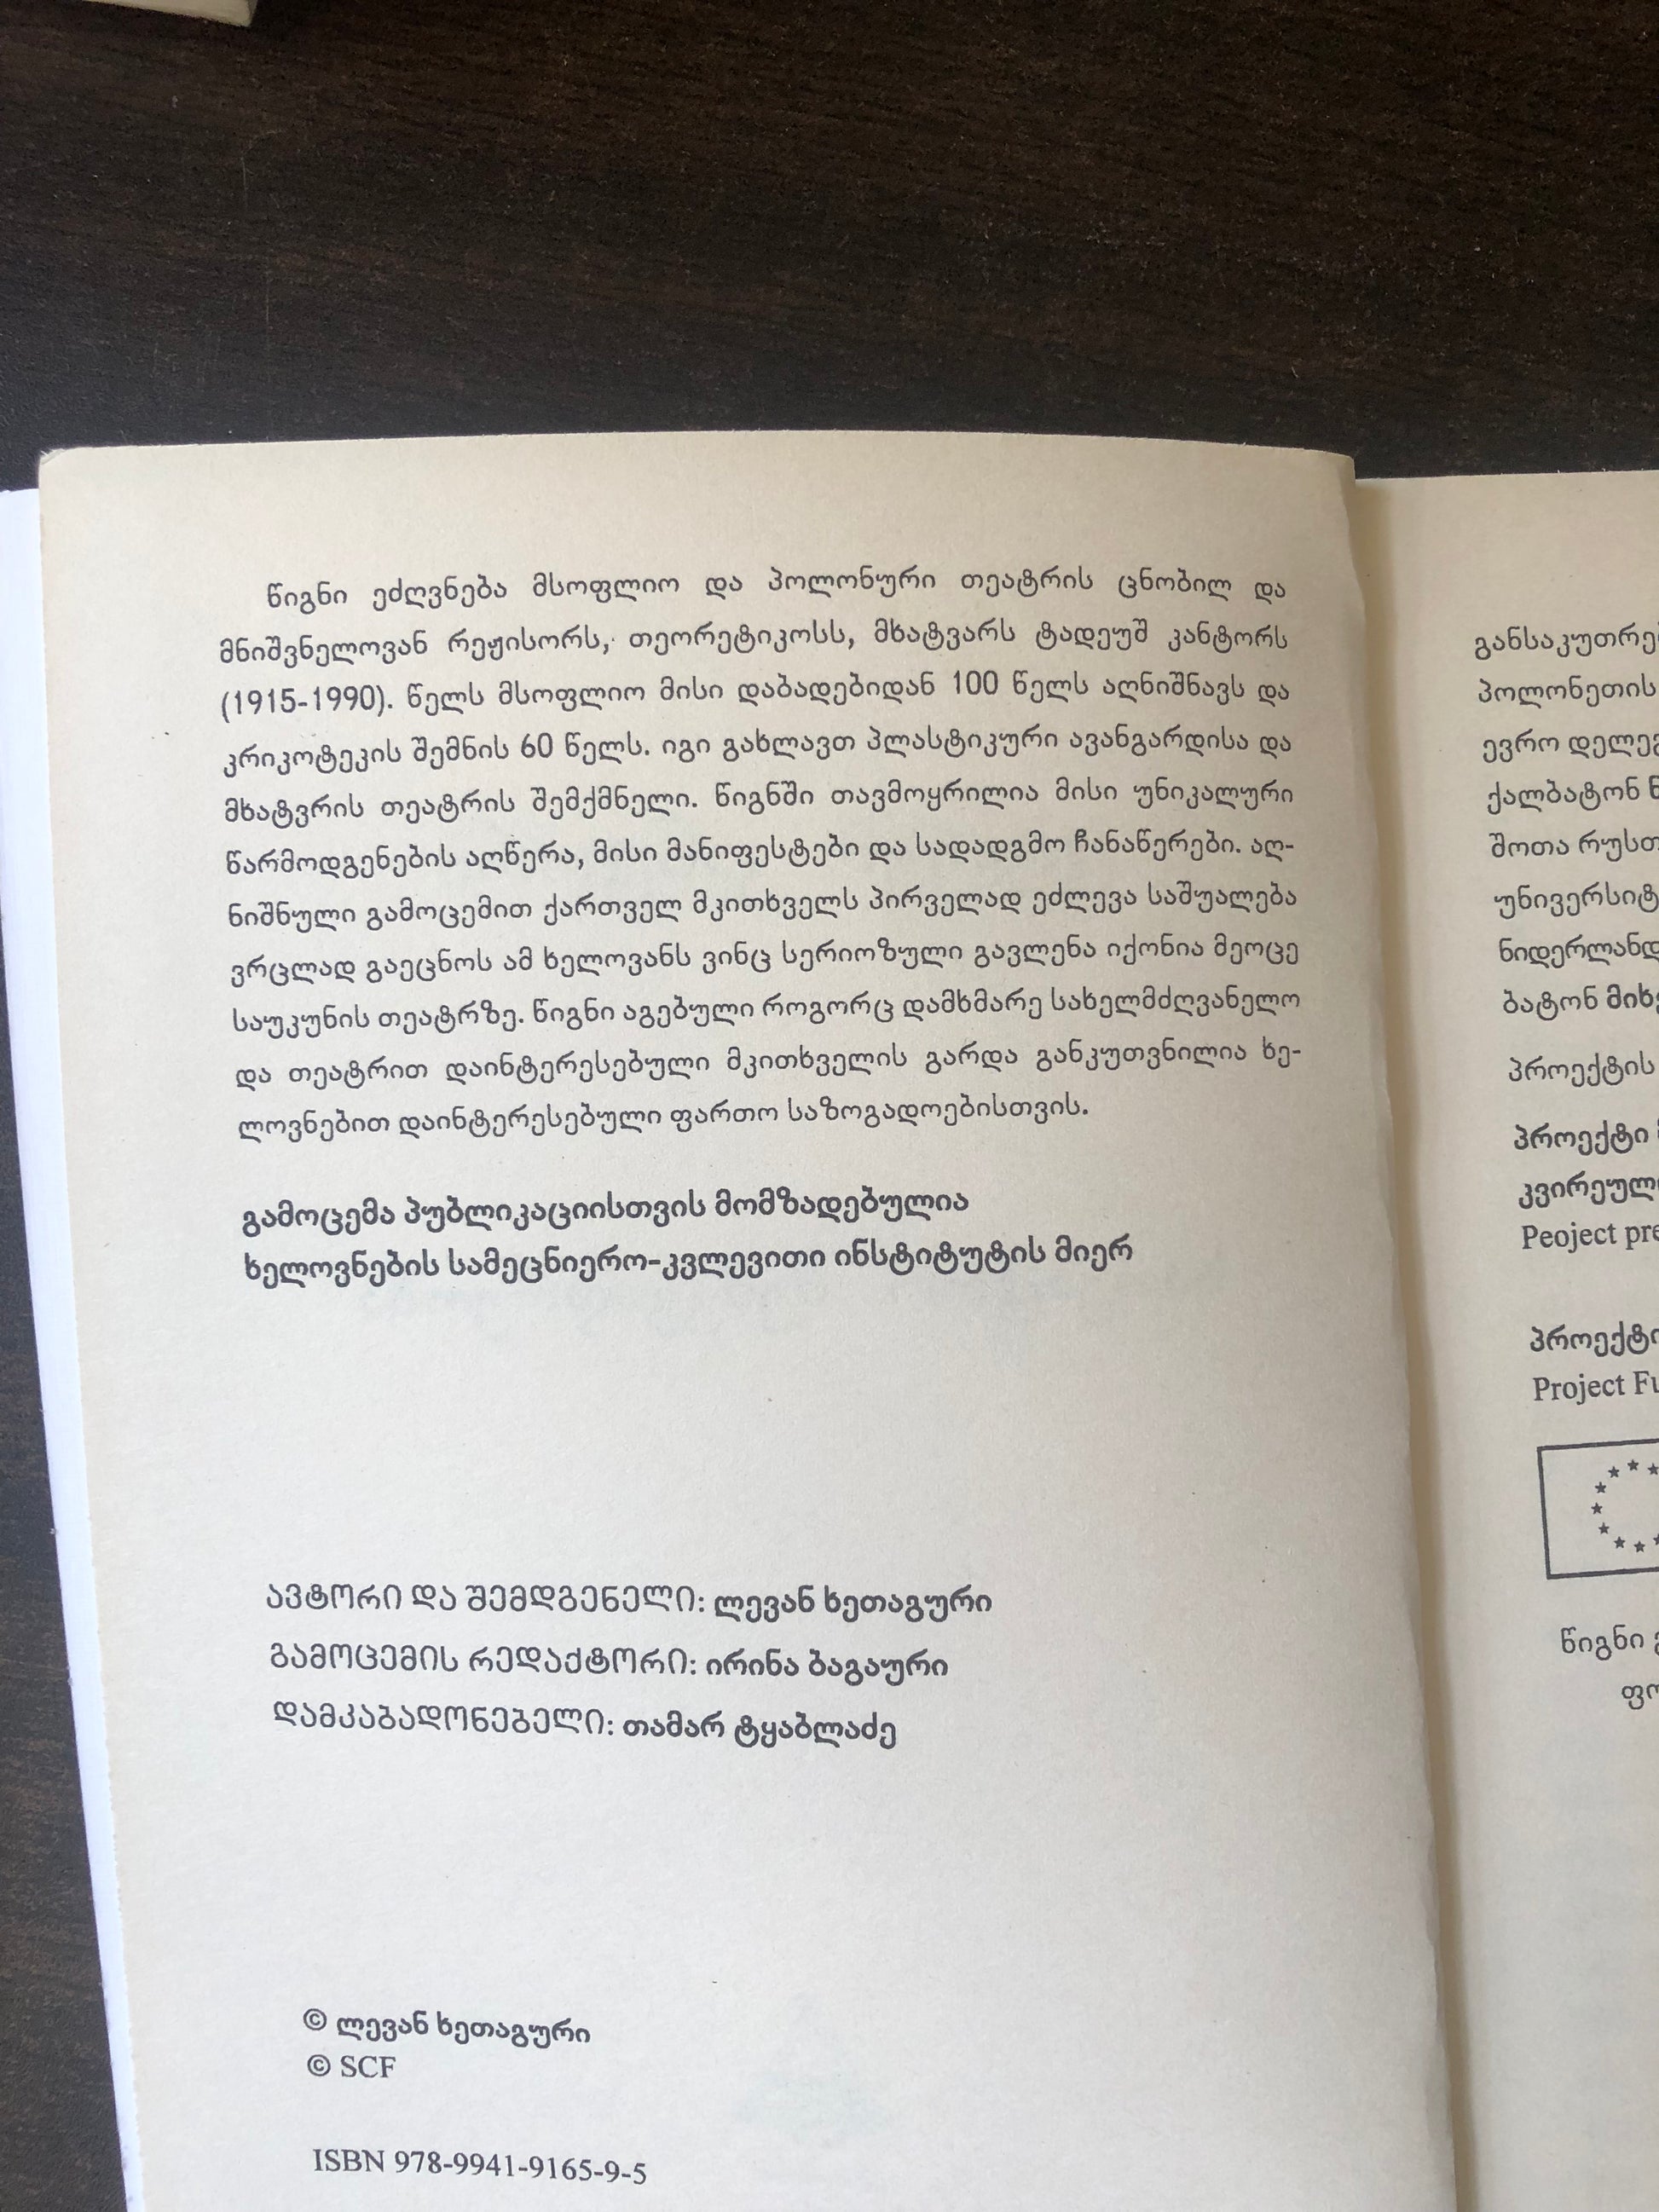 წიგნი ეძღვნება მსოფლიო და პოლონური თეატრის ცნობილ და
მნიშვნელოვან რეჟისორს, თეორეტიკოსს, მხატვარს ტადეუშ კანტორს
(1915-1990). წელს მსოფლიო მისი დაბადებიდან 100 წელს აღნიშნავს და
კრიკოტეკის შემნის 60 წელს. იგი გახლავთ პლასტიკური ავანგარდისა და
მხატვრის თეატრის შემქმნელი. წიგნში თავმოყრილია მისი უნიკალური
წარმოდგენების აღწერა, მისი მანიფესტები და სადადგმო ჩანაწერები. აღ-
ნიშნული გამოცემით ქართველ მკითხველს პირველად ეძლევა საშუალება
ვრცლად გაეცნოს ამ ხელოვანს ვინც სერიოზული გავლენა იქონია მეოცე
საუკუნის თეატრზე. წიგნი აგებული როგორც დამხმარე სახელმძღვანელო
და თეატრით დაინტერესებული მკითხველის გარდა განკუთვნილია ხე-
ლოვნებით დაინტერესებული ფართო საზოგადოებისთვის.
გამოცემა პუბლიკაციისთვის მომზადებულია
ხელოვნების სამეცნიერო-კვლევითი ინსტიტუტის მიერ
ავტორი და შემდგენელი: ლევან ხეთაგური
გამოცემის რედაქტორი: ირინა ბაგაური
დამკაბადონებელი: თამარ ტყაბლაძე
© ლევან ხეთაგური
© SCF
ISBN 978-9941-9165-9-5
პოლონეთის
ევრო
ქალბატონ
შოთა
ბატონ
პროექტის
პროექტი
Peoject
Project
წიგნი